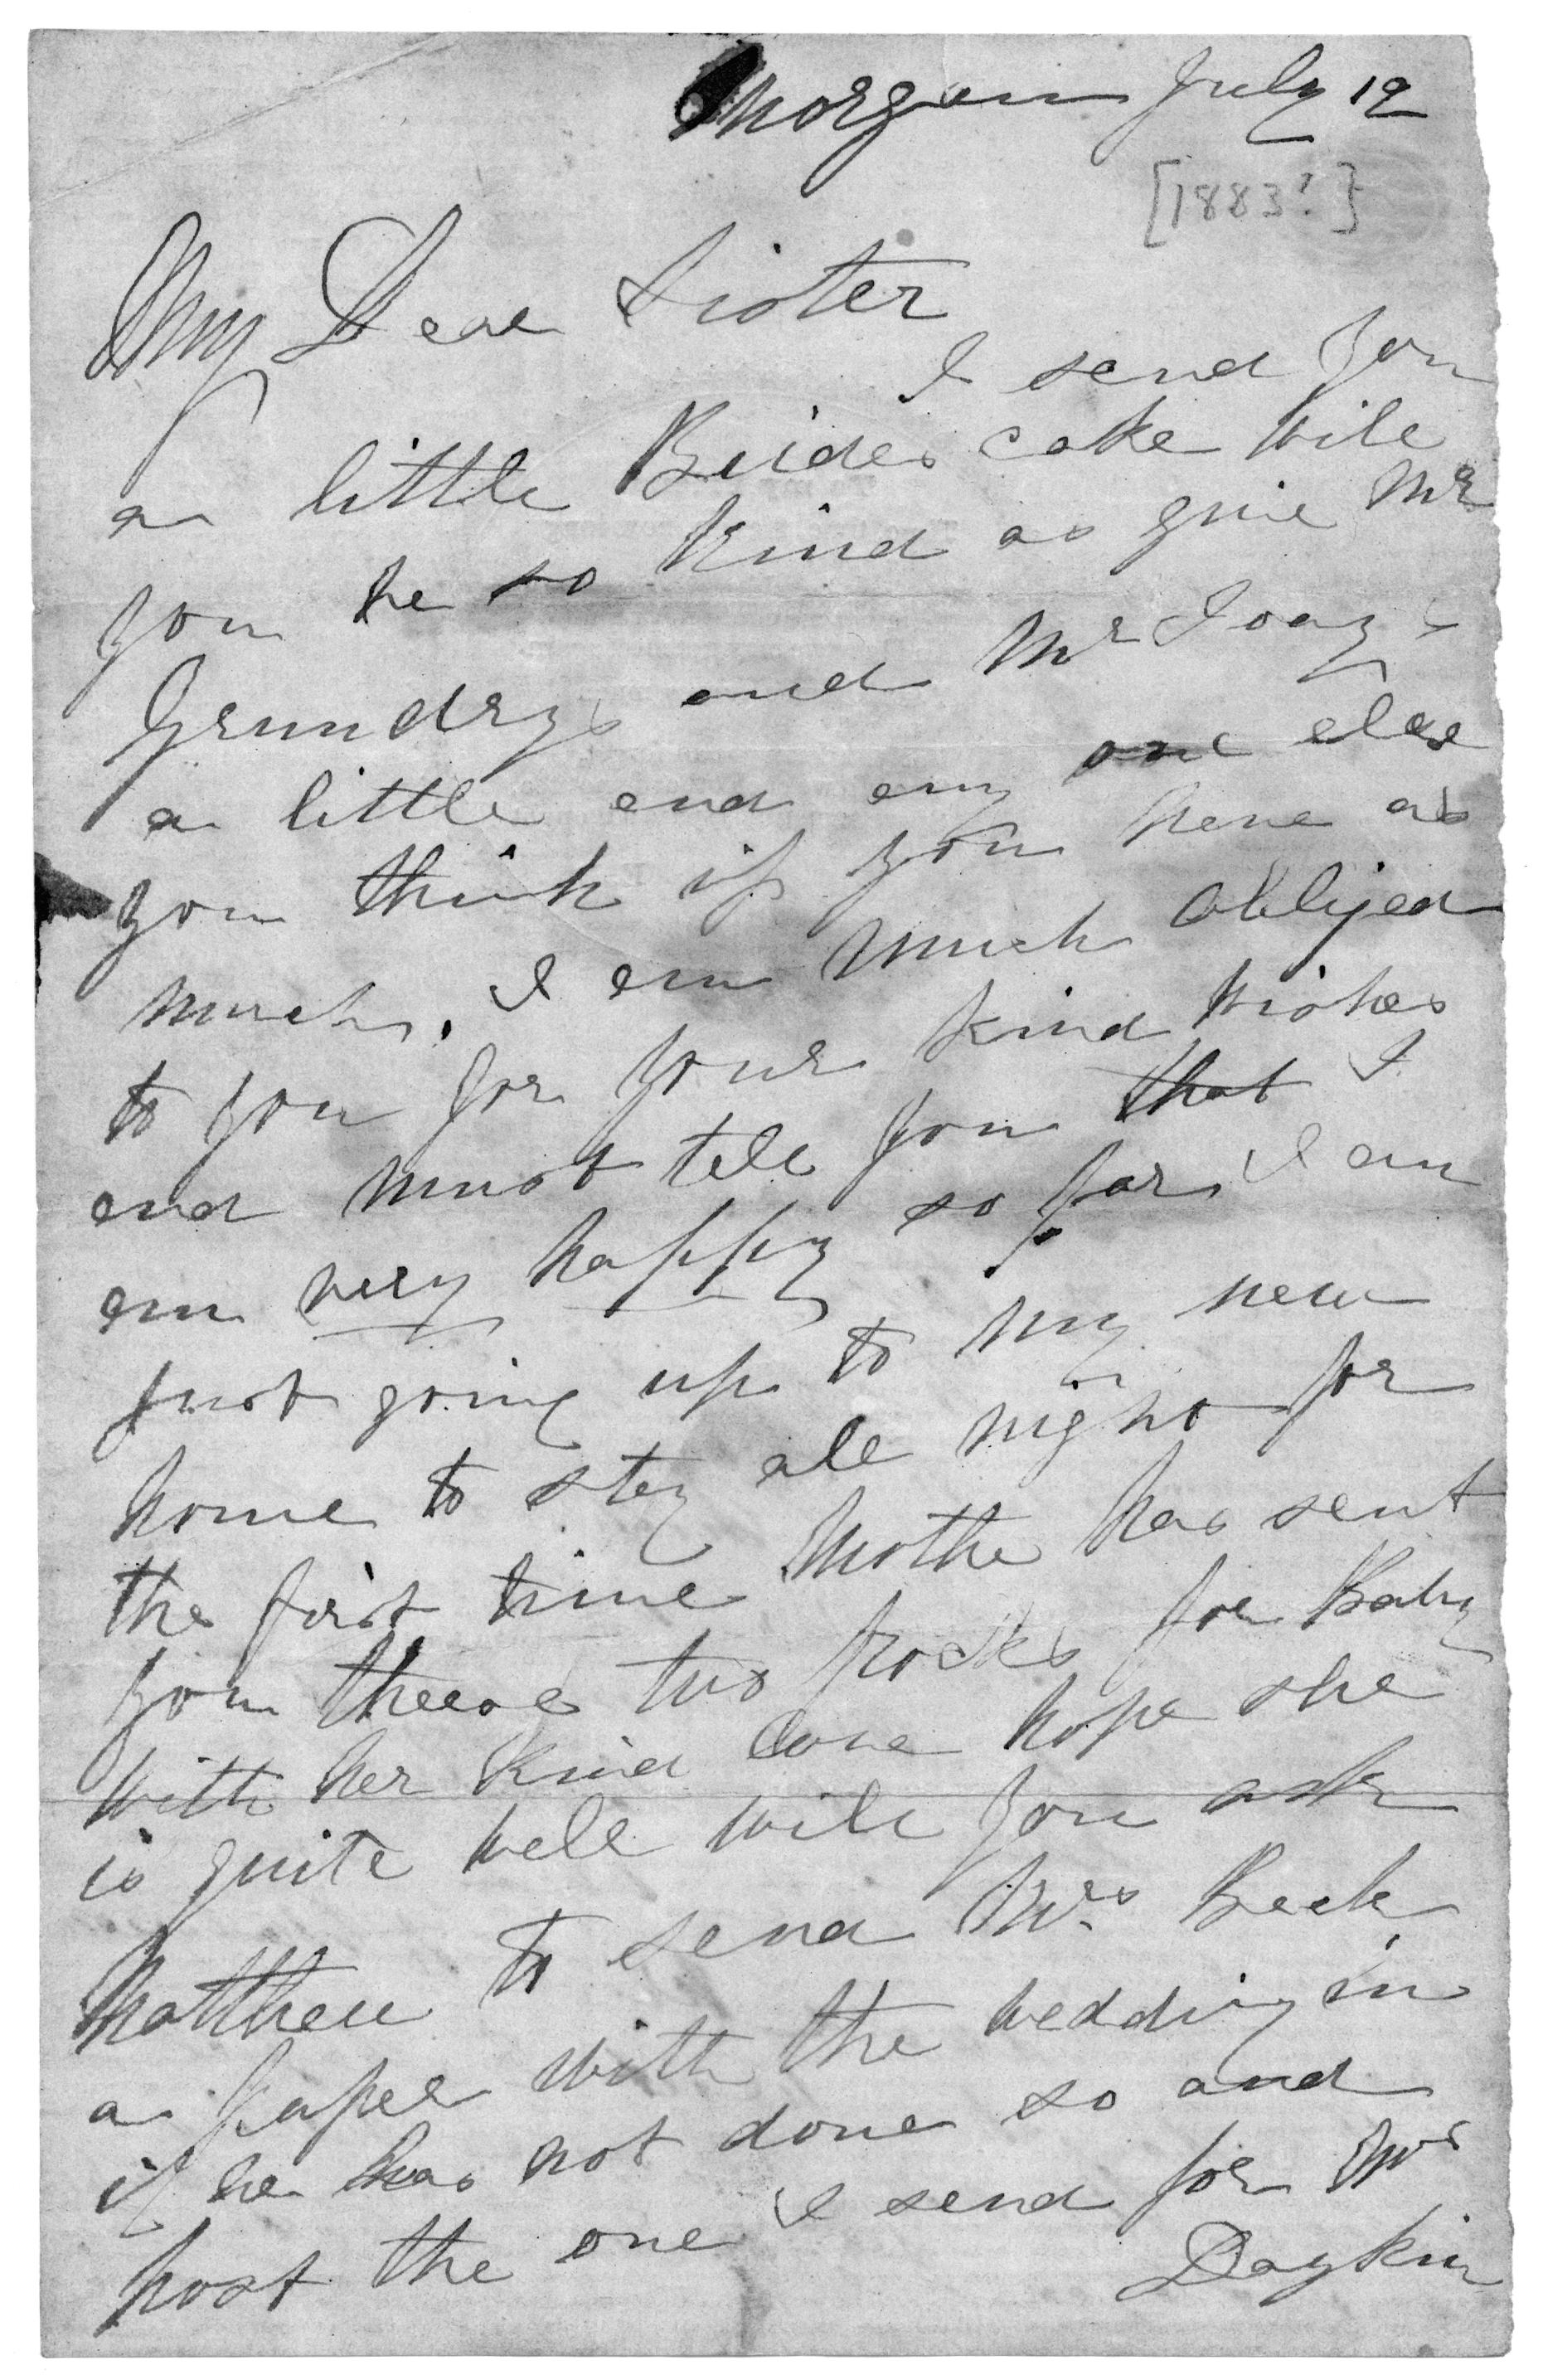 Morgan July 19
[1883?]
My Dear Sister
I send you
a little Brides cake will
you be so kind as give Mr
Grundrys and Mr
a little and any one else
you think if you have as
much. I am much oblijed
to you for your kind wishes
and must tell you that I
am very happy so far I am
just going up to my new
home to stay all night for
the first time Mothe has sent
you theese two frocks for Baby
with her kind love hope she
is quite well will you ask
Matthew to send Mrs Beck
a paper with the wedding in
if he has not done so and
post the one I send for Mrs
Daykin